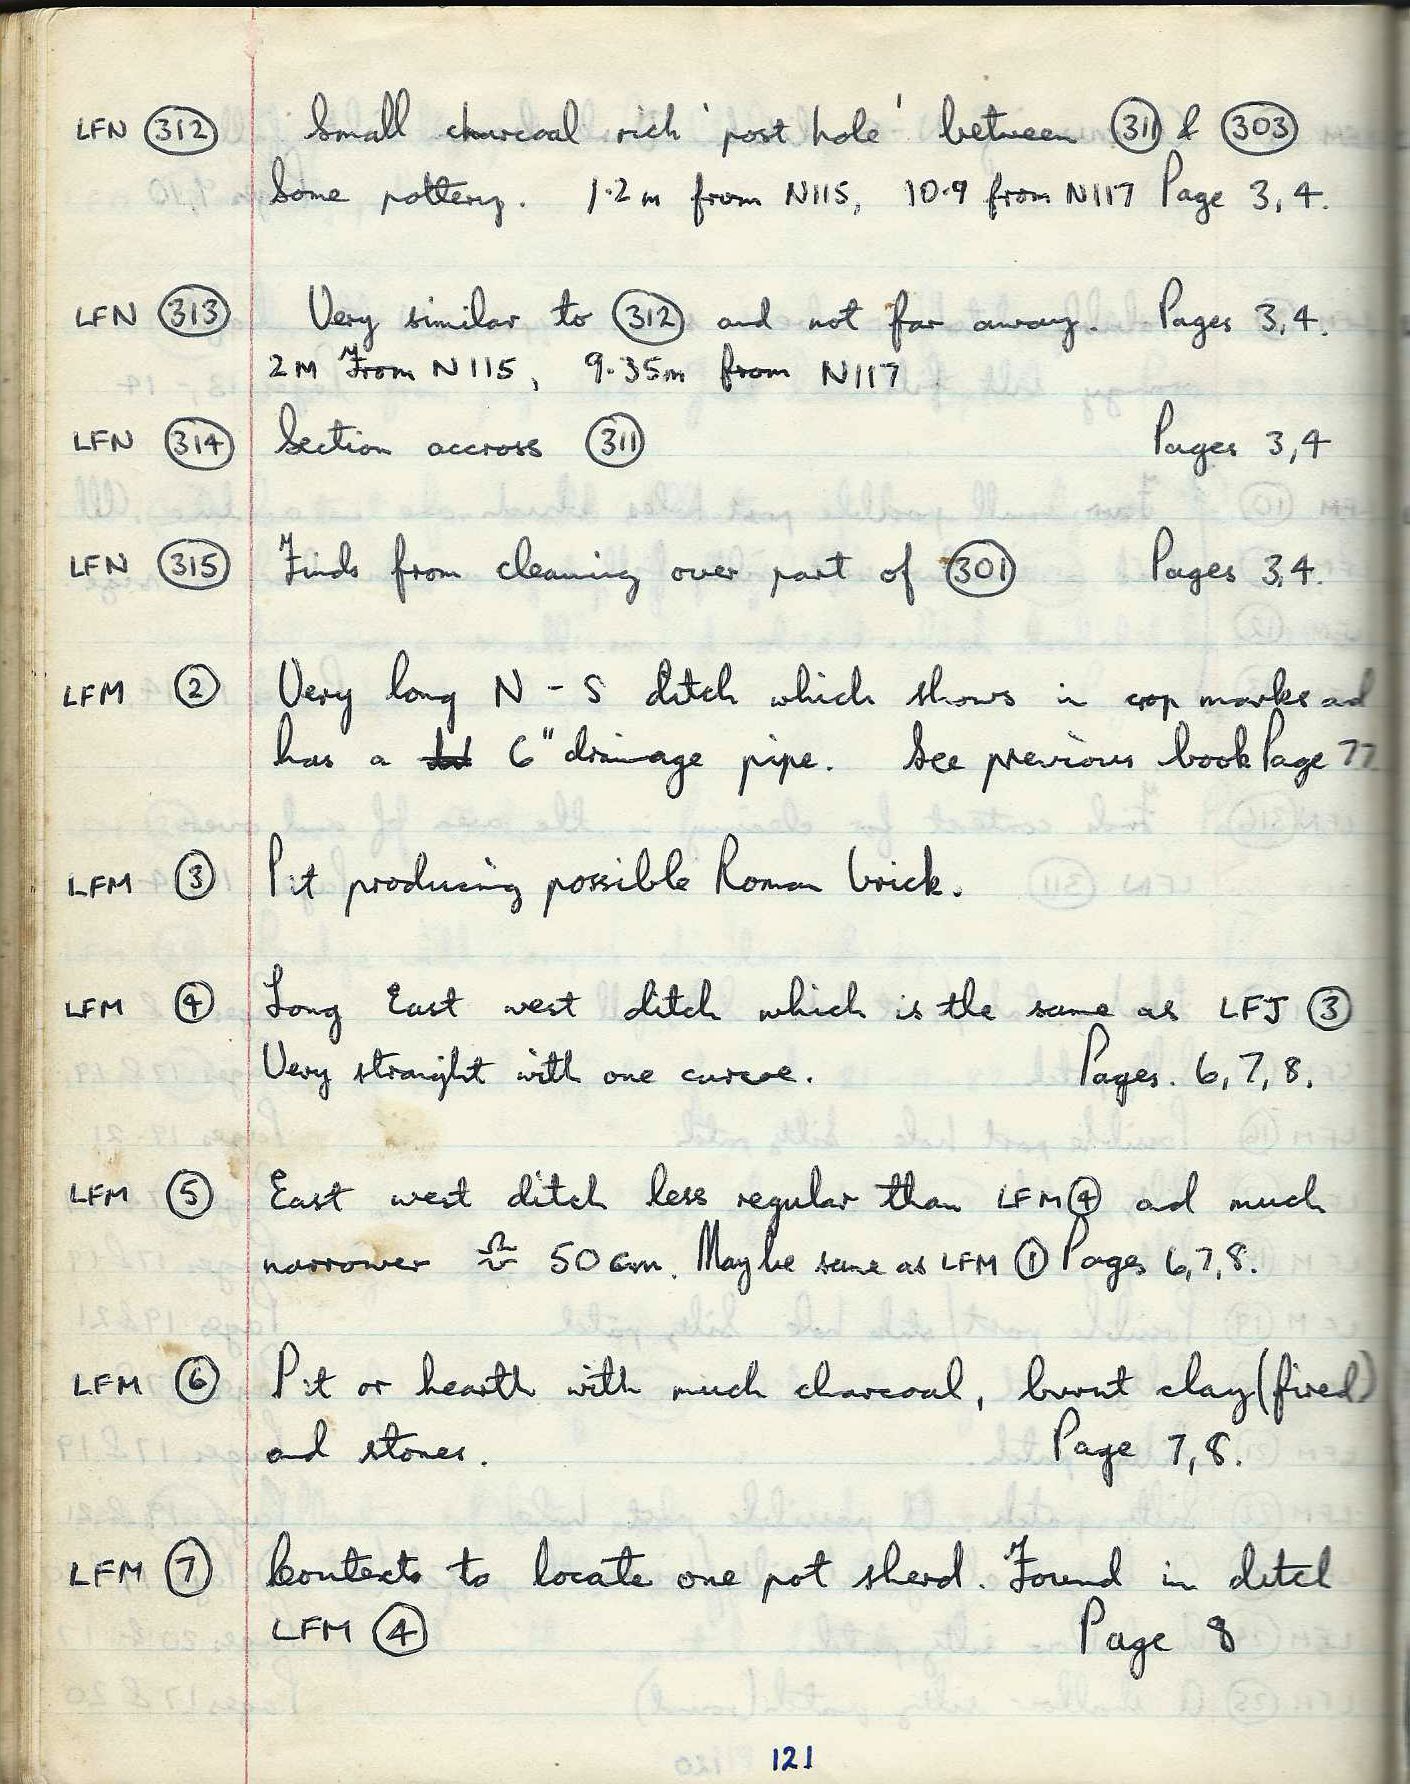 LFN 312 Small charcoal rich 'post hole' between 311 & 303
Some pottery. 1.2m from N115, 10.9 from N117 Page 3, 4.
LFN 313 Very similar to 312 and not far away. Pages 3, 4.
2M From N115, 9.35m from N117
LFN 314 Section accross 311 Pages 3, 4
LFN 315 Finds from cleaning over part of 301 Pages 3, 4.
LFM 2 Very long N - S ditch which shows in crop marks ad
has a 6" drainage pipe. See previous book Page 77
LFM 3 Pit producing possible Roman brick.
LFM 4 Long East west ditch which is the same as LFJ 3
Very straight with one curve. Pages. 6, 7, 8.
LFM 5 East west ditch less regular than LFM 4 and much
narrower ≈ 50cm. Maybe same as LFM 1 Pages 6, 7, 8.
LFM 6 Pit or hearth with much charcoal, burnt clay (fired)
and stones. Page 7, 8.
LFM 7 Contexts to locate one pot sherd. Found in ditch
LFM 4 Page 8
121